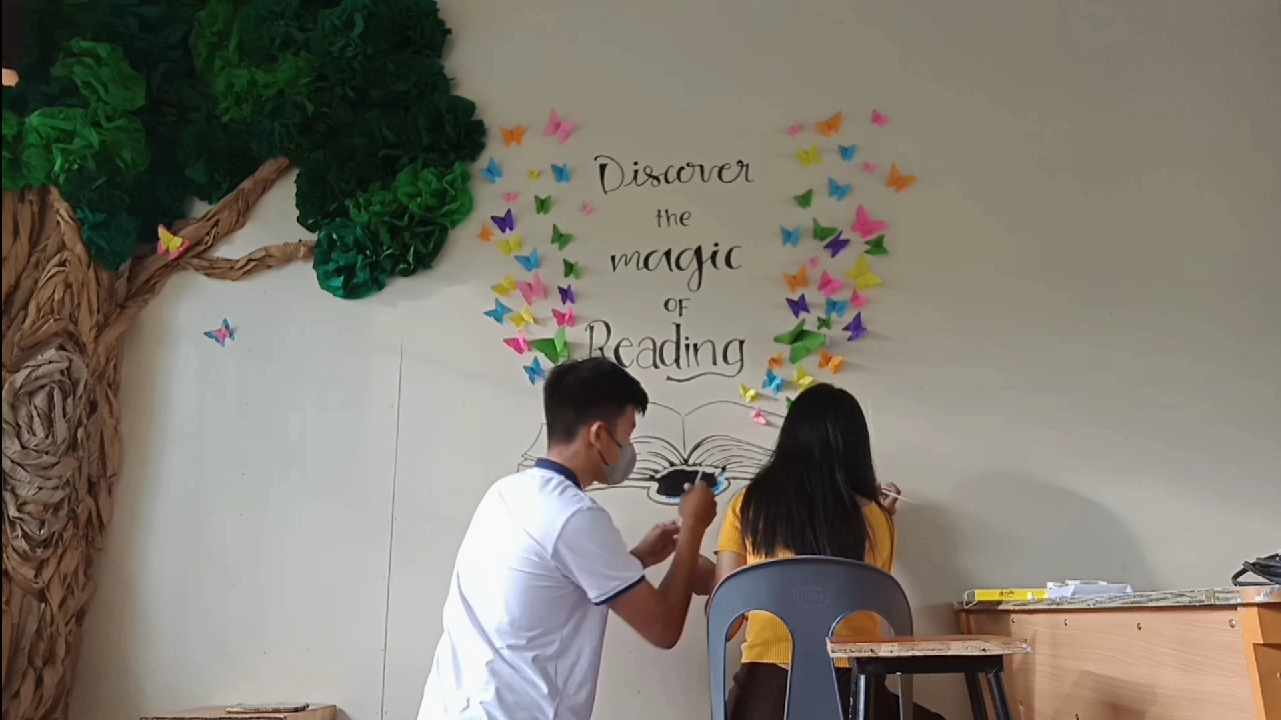 Discover
the
magic
OF
Reading